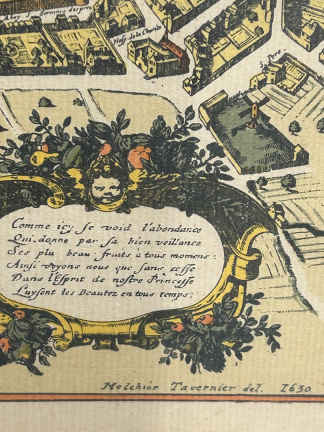 Hosp. de la Charité
Comme icy se void l'abondance
Qui donne par sa bien veillance
Ses plu beau fruits a tous momens:
Ainsi voyons nous que sans cesse
Dans l'Esprit de nostre Princesse
Luysent les Beautez en tous temps:
Melchior Tavernier del. 1630